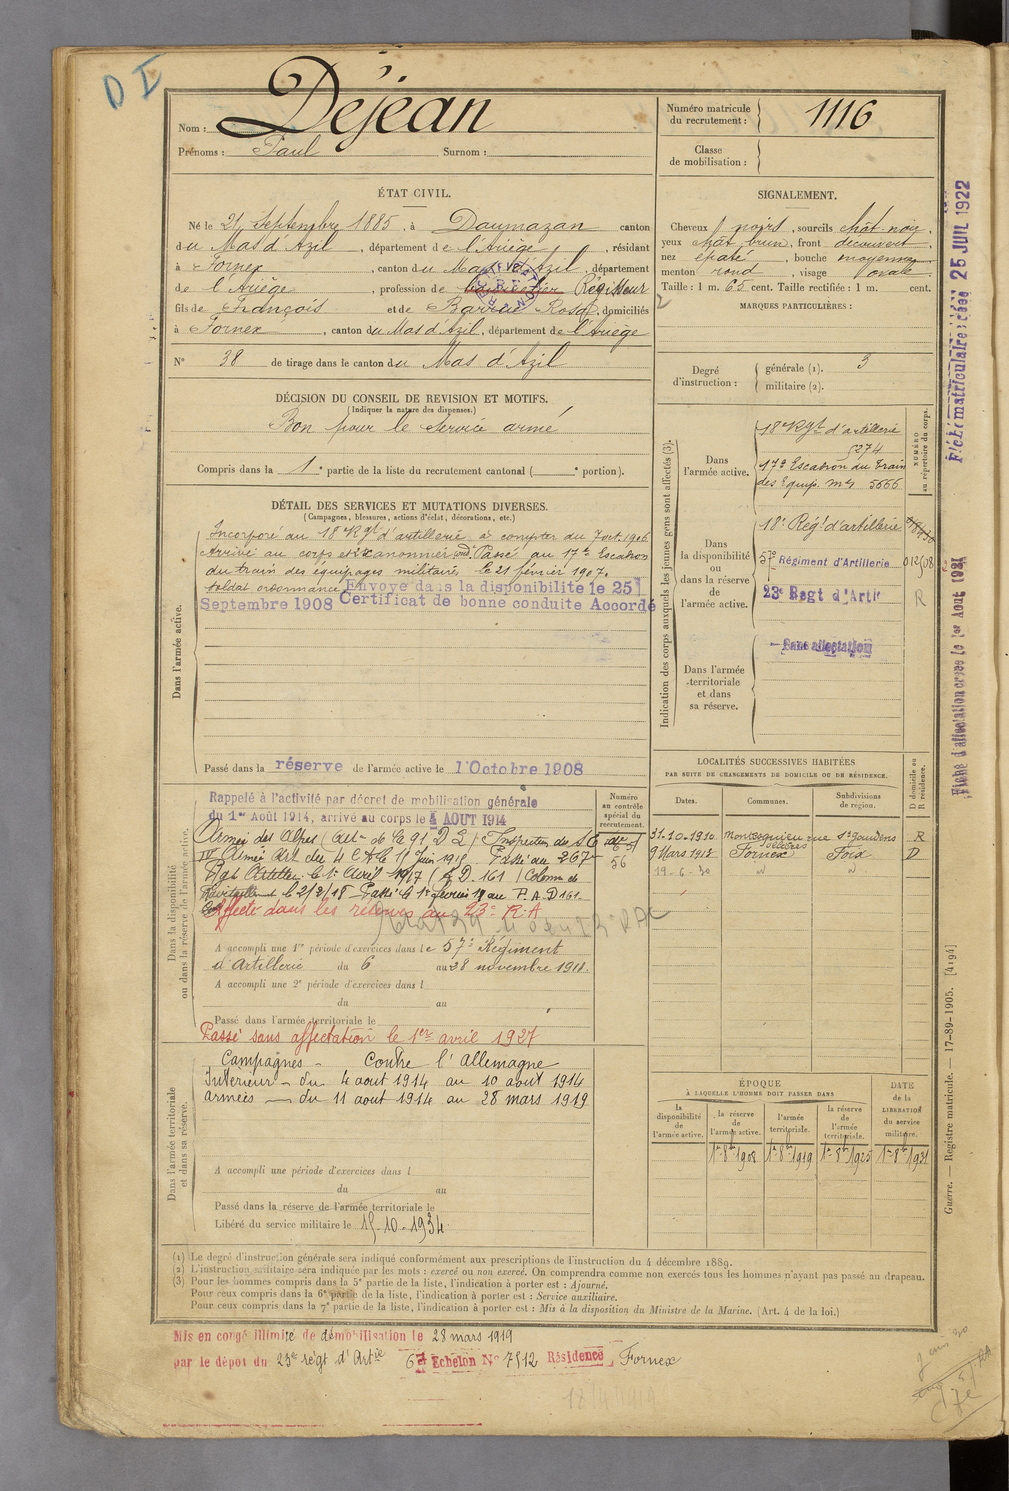 D I
Nom : Déjean
Prénoms : Paul Surnom :
Numéro matricule du recrutement : 1116
Classe de mobilisation :
ÉTAT CIVIL.
Né le 21 Septembre 1885, à Daumazan canton
du Mas d'Azil, département de l'Ariège, résidant
à Fornex, canton du Mas d'Azil, département
de l'Ariège, profession de Régisseur
fils de François et de Barrue Rosa, domiciliés
à Fornex, canton du Mas d'Azil, département de l'Ariège
N° 38 de tirage dans le canton du Mas d'Azil
SIGNALEMENT.
Cheveux noirs, sourcils chât noir,
yeux chât brun, front découvert,
nez épaté, bouche moyenne,
menton rond, visage ovale.
Taille : 1 m. 65 cent. Taille rectifiée : 1 m. cent.
MARQUES PARTICULIÈRES :
DÉCISION DU CONSEIL DE REVISION ET MOTIFS.
(Indiquer la nature des dispenses.)
Bon pour le service armé
Compris dans la 1e partie de la liste du recrutement cantonal ( e portion).
Degré d'instruction :
générale (1). 3
militaire (2).
DÉTAIL DES SERVICES ET MUTATIONS DIVERSES.
(Campagnes, blessures, actions d'éclat, décorations, etc.)
Dans l'armée active.
Incorporé au 18e Rgt d'artillerie à compter du 7 oct. 1906.
Arrivé au corps et 2e canonnier cond. Passé au 17e Escadron
du train des équipages militaires le 21 février 1907.
soldat ordonnance Envoyé dans la disponibilité le 25
Septembre 1908 Certificat de bonne conduite Accordé
Passé dans la réserve de l'armée active le 1er Octobre 1908
Indication des corps auxquels les jeunes gens sont affectés (3).
NUMÉRO au répertoire du corps.
Dans l'armée active.
18e Rgt d'artillerie
5274
17e Escadron du Train
des Equip. mres 5666
Dans la disponibilité ou dans la réserve de l'armée active.
18e Régt d'artillerie
57e Régiment d'Artillerie 012/508
23e Regt d'Artie R
Dans l'armée territoriale et dans sa réserve.
Sans affectation
LOCALITÉS SUCCESSIVES HABITÉES
PAR SUITE DE CHANGEMENTS DE DOMICILE OU DE RÉSIDENCE.
Dates. Communes. Subdivisions de région. D domicile ou R résidence.
31-10-1910 Montesquieu-Volvestre St Gaudens R
9 Mars 1912 Fornex Foix D
19-6-30 " "
Dans la disponibilité ou dans la réserve de l'armée active.
Numéro au contrôle spécial du recrutement.
56
Rappelé à l'activité par décret de mobilisation générale
du 1er Août 1914, arrivé au corps le 4 AOUT 1914
Armée des Alpes (Art de la 91e D I) Inspection du S E
IVe Armée Art du 4e C A le 11 Juin 1915. Passé au 267e
Rgt Artillie le 1er Avril 1917 (I D. 161) Colonne de
Ravitaillement le 2/2/18 Passé le 1er février 18 au P. A. D 161.
Affecté dans les réserves au 23e R. A
A accompli une 1re période d'exercices dans le 57e Régiment
d'Artillerie du 6 au 28 novembre 1911.
A accompli une 2e période d'exercices dans l
du au
Passé dans l'armée territoriale le
Passé sans affectation le 1er avril 1927
Dans l'armée territoriale et dans sa réserve.
Campagnes - Contre l'Allemagne
Intérieur - du 4 aout 1914 au 10 août 1914
armées - du 11 aout 1914 au 28 mars 1919
A accompli une période d'exercices dans l
du au
Passé dans la réserve de l'armée territoriale le
Libéré du service militaire le 15-10-1934
ÉPOQUE À LAQUELLE L'HOMME DOIT PASSER DANS
DATE de la LIBÉRATION du service militaire.
la disponibilité de l'armée active. la réserve de l'armée active. l'armée territoriale. la réserve de l'armée territoriale.
1er 8bre 1908 1er 8bre 1919 1er 8bre 1925 1er 8bre 1931
(1) Le degré d'instruction générale sera indiqué conformément aux prescriptions de l'instruction du 4 décembre 1889.
(2) L'instruction militaire sera indiquée par les mots : exercé ou non exercé. On comprendra comme non exercés tous les hommes n'ayant pas passé au drapeau.
(3) Pour les hommes compris dans la 5e partie de la liste, l'indication à porter est : Ajourné.
Pour ceux compris dans la 6e partie de la liste, l'indication à porter est : Service auxiliaire.
Pour ceux compris dans la 7e partie de la liste, l'indication à porter est : Mis à la disposition du Ministre de la Marine. (Art. 4 de la loi.)
Mis en congé illimité de démobilisation le 28 mars 1919
par le dépôt du 23e régt d'Artie 6e Echelon N° 7512 Résidence Fornex
Fiche matriculaire créée 25 JUIL 1922
Fiche d'affectation créée le 1er Aout 1921
Guerre. — Registre matricule. — 17-89-1905. [4194]